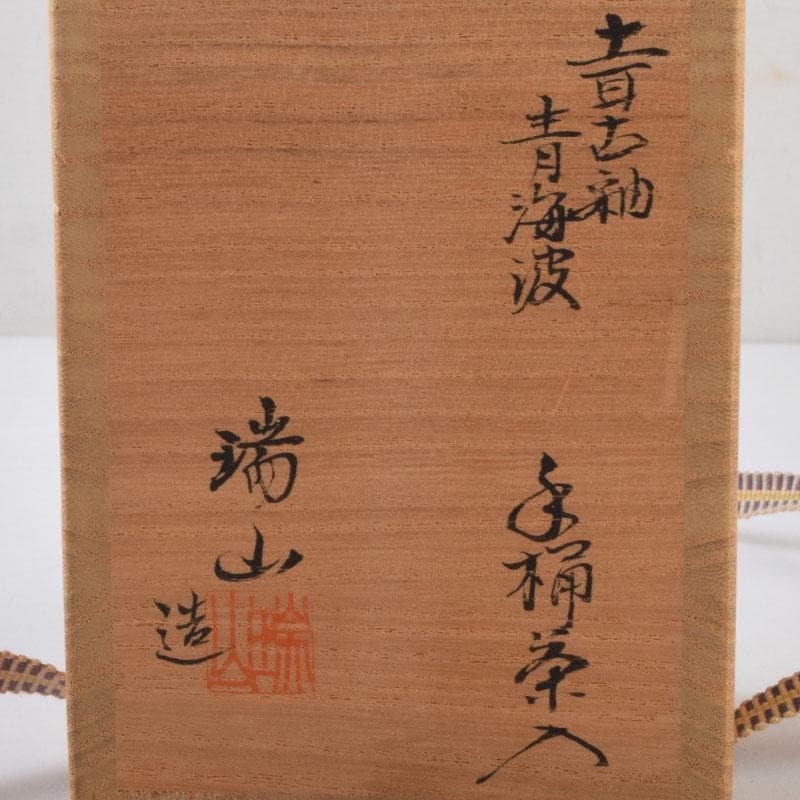 古釉
青海波
手桶茶入
瑞山
造
瑞山